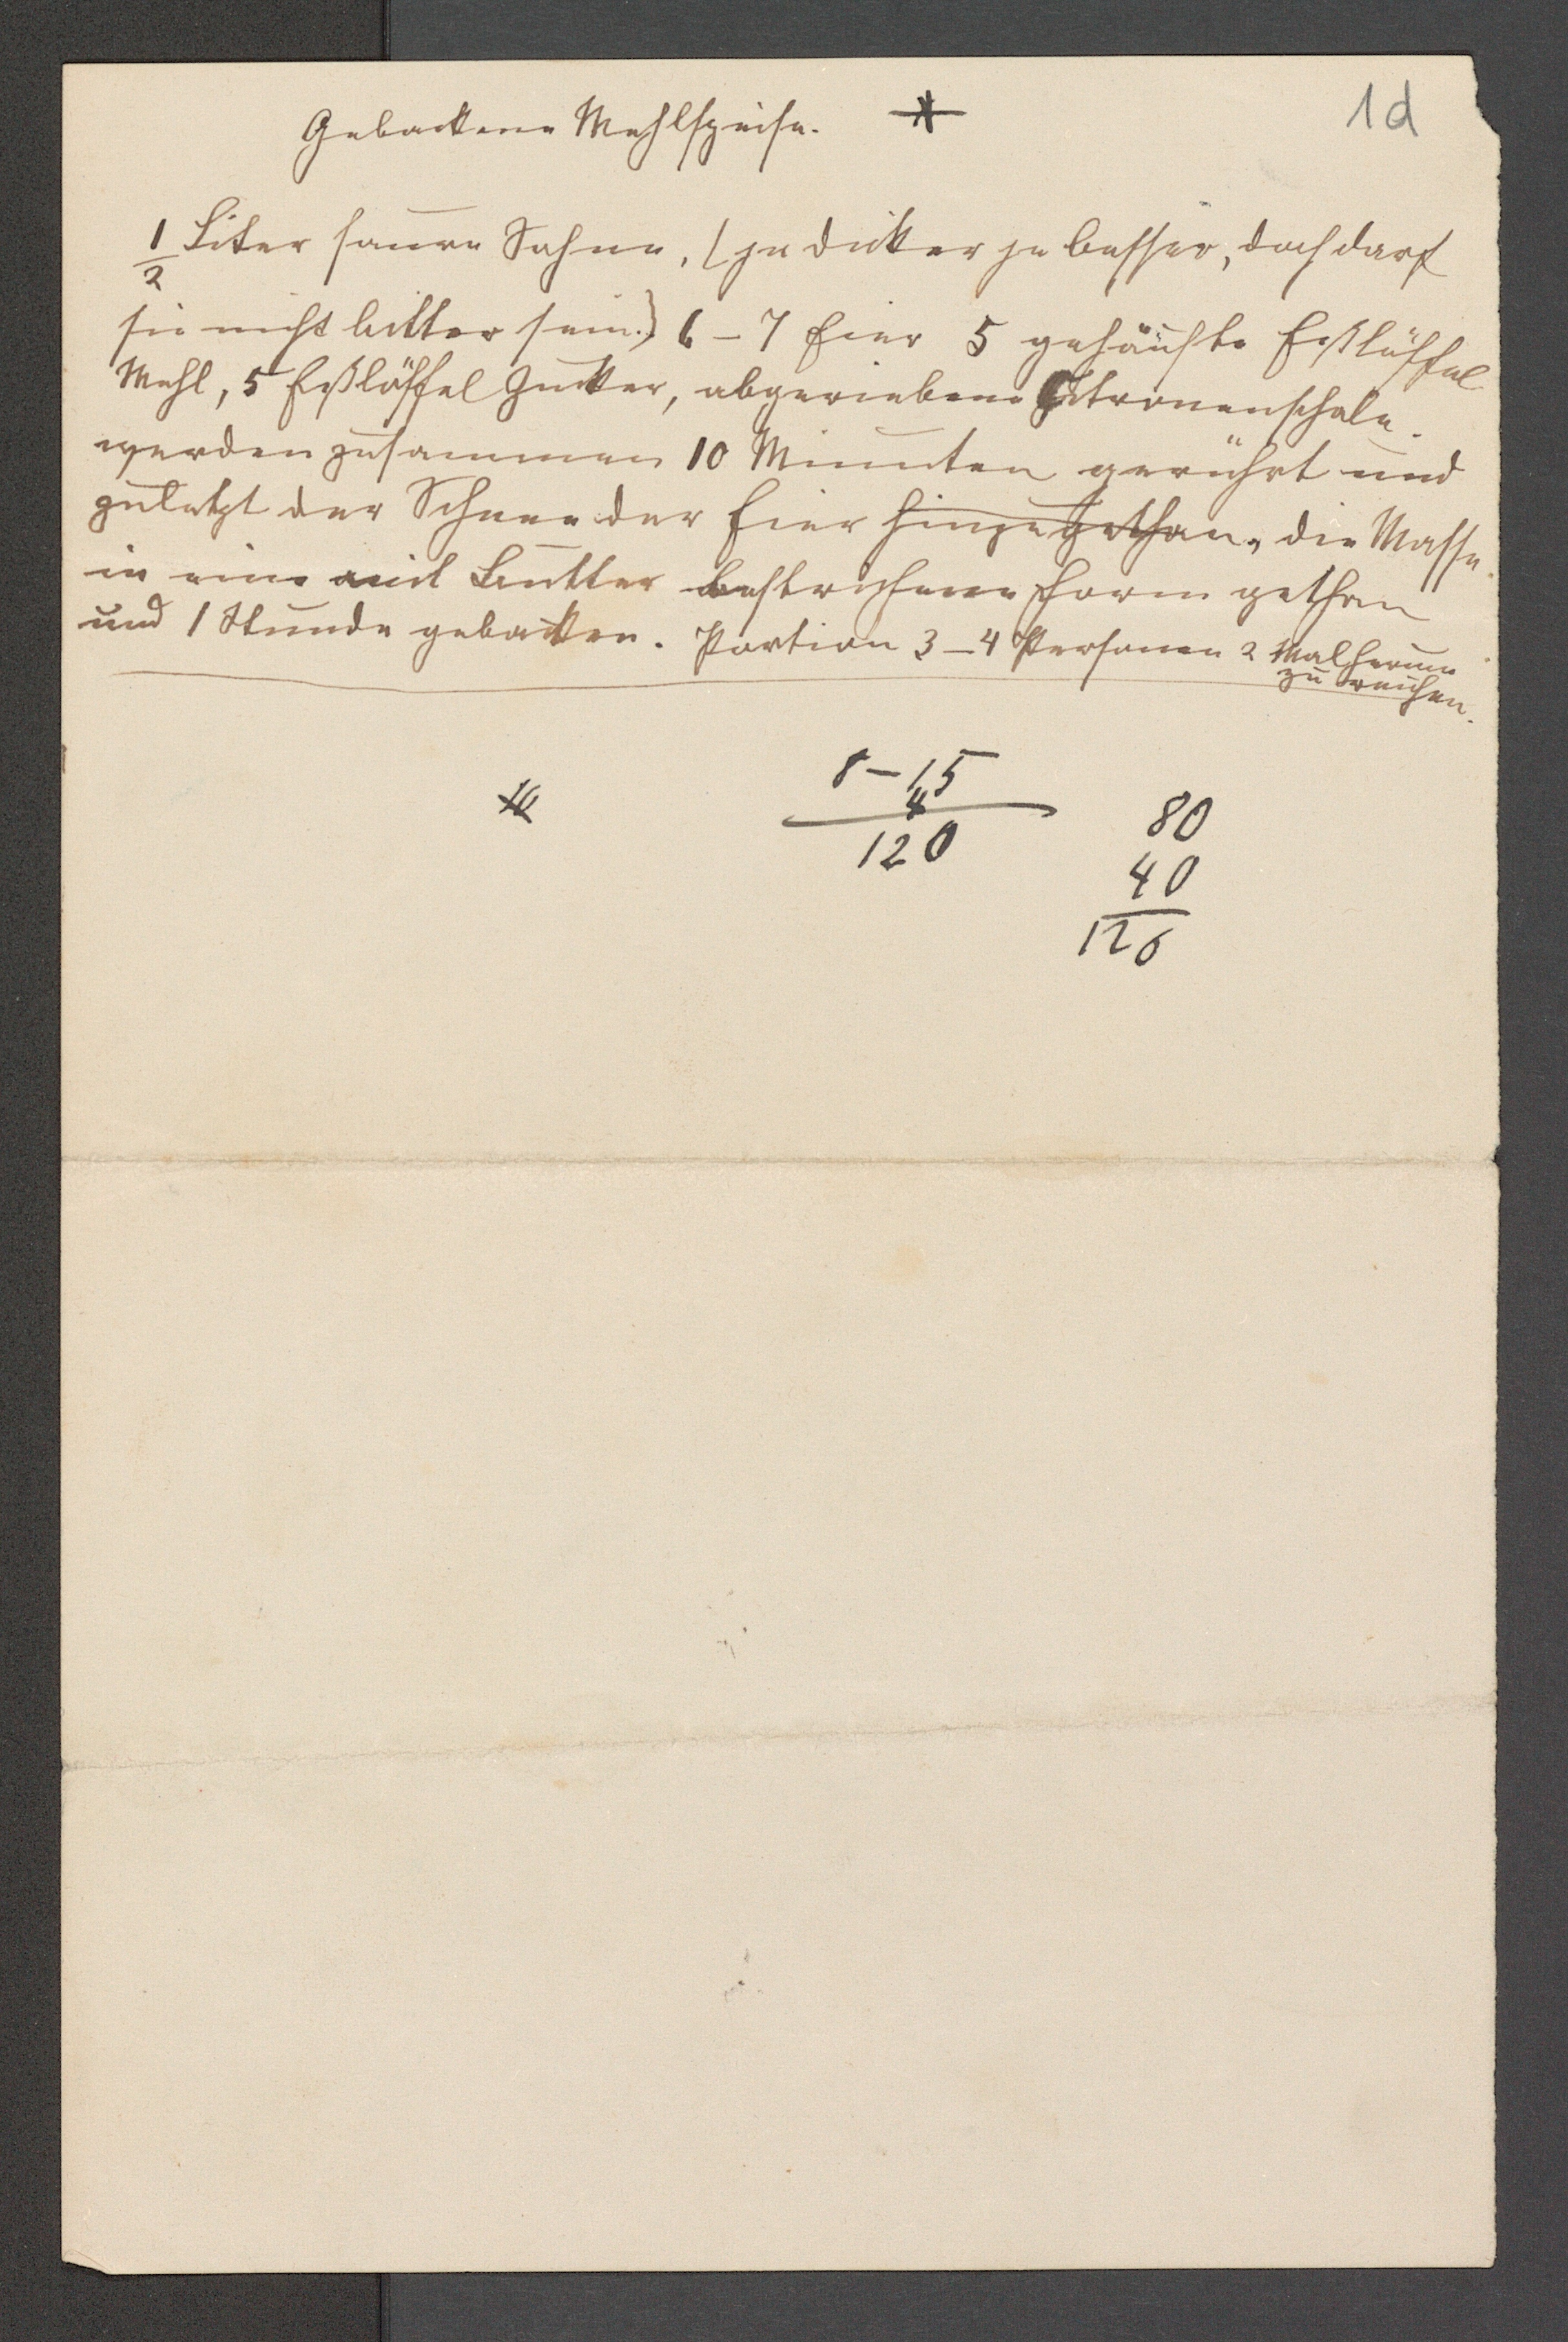 Gebackene Mehlspeise.
1d
1/2 Liter saure Sahne, (je dicker je besser, doch darf
sie nicht bitter sein.) 6 – 7 Eier 5 gehäufte Eßlöffel
Mehl, 5 Eßlöffel Zucker, abgeriebene Citronenschale
werden zusammen 10 Minuten gerührt und
zuletzt der Schnee der Eier hinzugethan, die Masse
in eine mit Butter bestrichene Form gethan
und 1 Stunde gebacken. Portion 3 – 4 Personen 2 Mal herum
zu reichen.
8 – 15
120
80
40
120